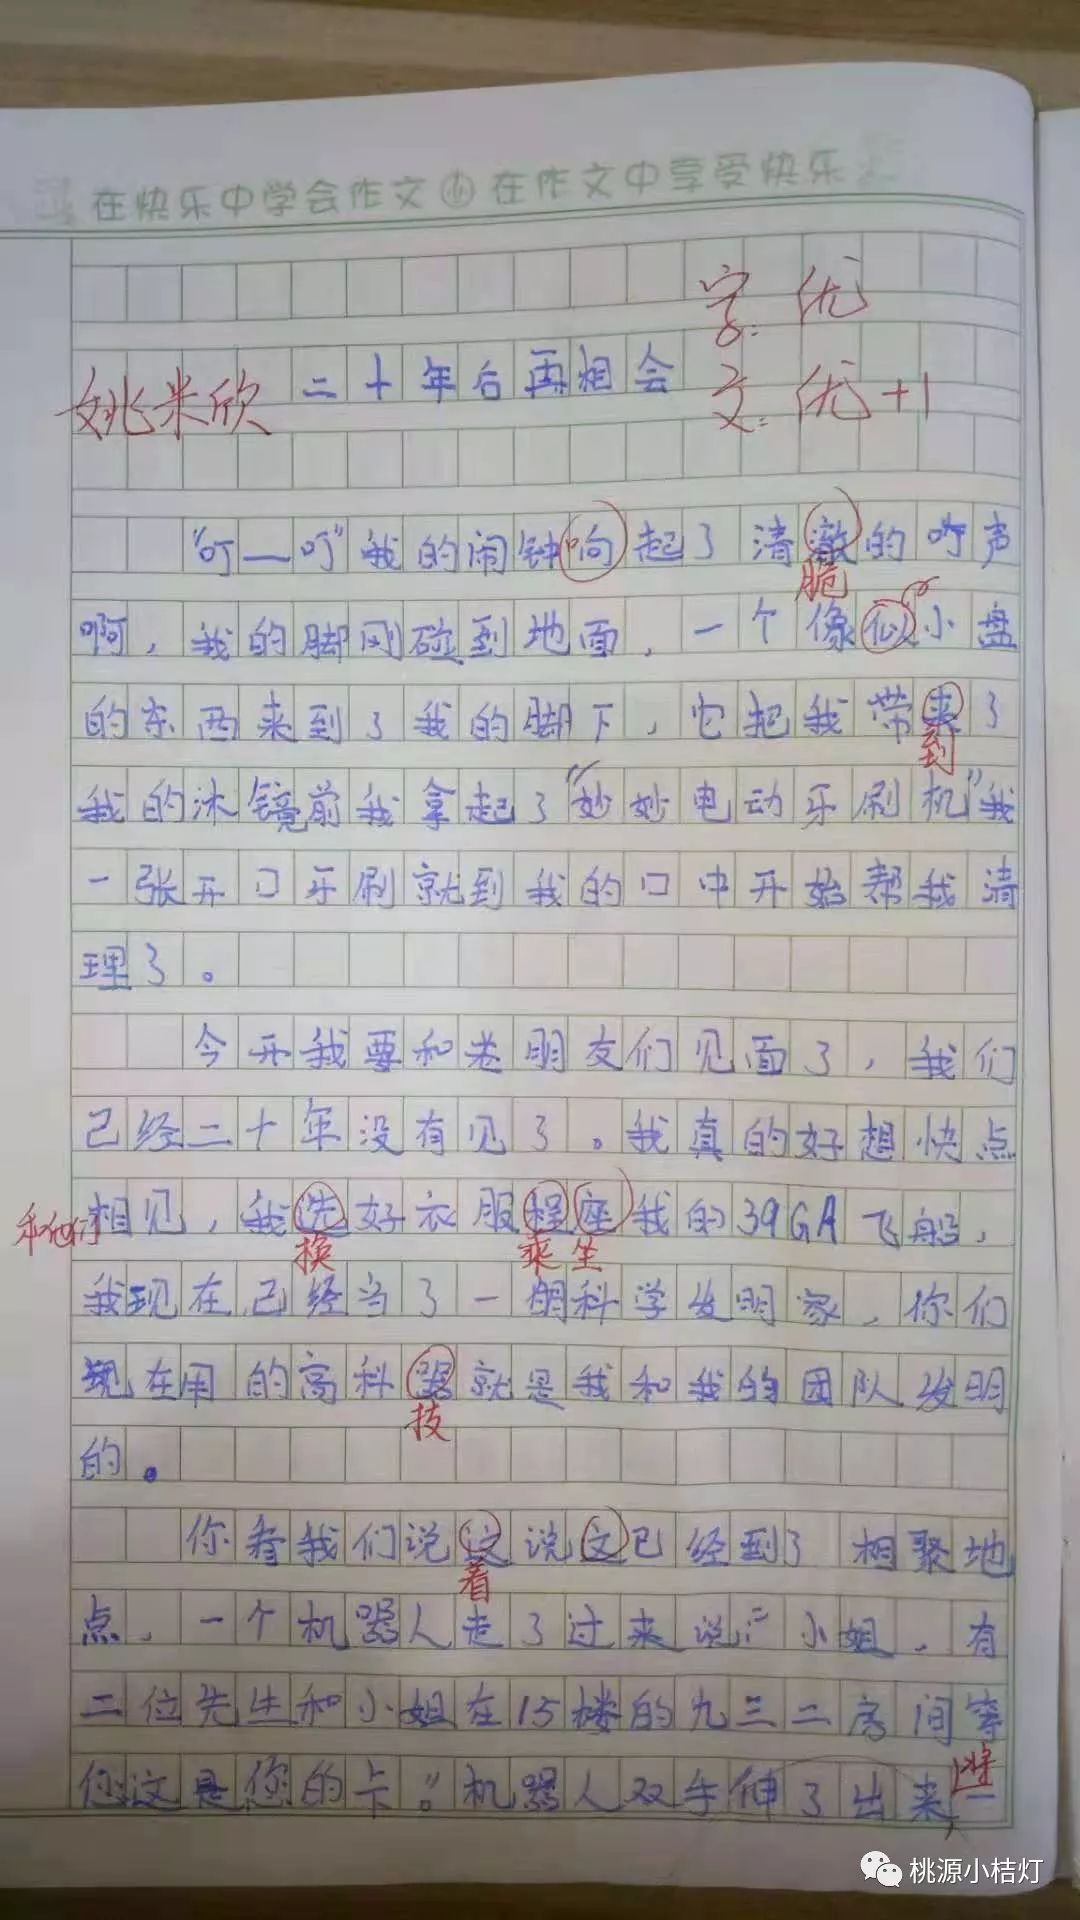 在快乐中学会作文 小 在作文中享受快乐
字：优
姚米欣 二十年后再相会 文：优+1
“叮—叮”我的闹钟响起了清澈的叮声
脆
啊，我的脚刚碰到地面，一个像似小盘
的东西来到了我的脚下，它把我带来了
到
我的沐镜前我拿起了“妙妙电动牙刷机”我
一张开口牙刷就到我的口中开始帮我清
理了。
今天我要和老朋友们见面了，我们
己经二十年没有见了。我真的好想快点
和他们相见，我洗好衣服程座我的39GA飞船，
换 乘 坐
我现在己经当了一朋科学发明家，你们
现在用的高科器就是我和我的团队发明
技
的。
你看我们说这说文已经到了相聚地
着
点，一个机器人走了过来说：“小姐，有
二位先生和小姐在15楼的九三二房间等
您这是您的卡。”机器人双手伸了出来，一
递
桃源小桔灯